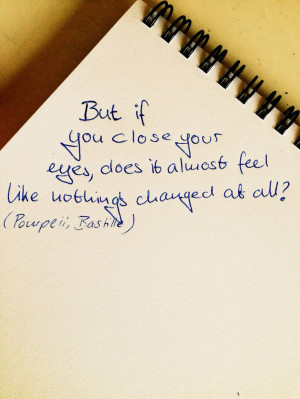 But if
you close your
eyes, does it almost feel
like nothings changed at all?
(Pompeii, Bastille)